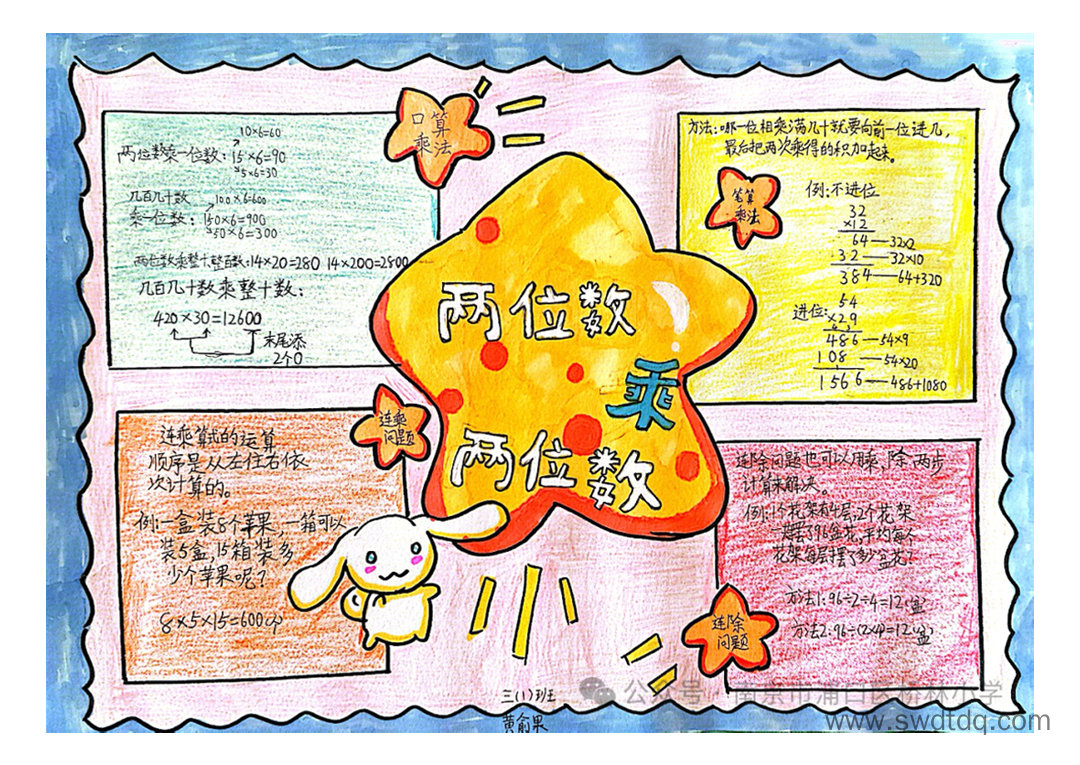 口算
乘法
10×6=60
两位数乘一位数：15×6=90
5×6=30
几百几十数
100×6=600
乘一位数：150×6=900
50×6=300
两位数乘整十整百数：14×20=280 14×200=2800
几百几十数乘整十数：
420×30=12600
末尾添
2个0
方法：哪一位相乘满几十就要向前一位进几，
最后把两次乘得的积加起来。
笔算
乘法
例：不进位
32
×12
64—32×2
32—32×10
384—64+320
进位：
54
×29
486—54×9
108—54×20
1566—486+1080
两位数
乘
两位数
连乘
问题
连乘算式的运算
顺序是从左往右依
次计算的。
例：一盒装8个苹果，一箱可以
装5盒，15箱装多
少个苹果呢？
8×5×15=600(个)
连除问题也可以用乘、除两步
计算来解决。
例：1个花架有4层，2个花架
一共摆了96盆花，平均每个
花架每层摆了多少盆花？
方法1：96÷2÷4=12(盆)
方法2：96÷(2×4)=12(盆)
连除
问题
三(1)班
黄俞果
公众号 南京市浦口区桥林小学
www.swdtdq.com